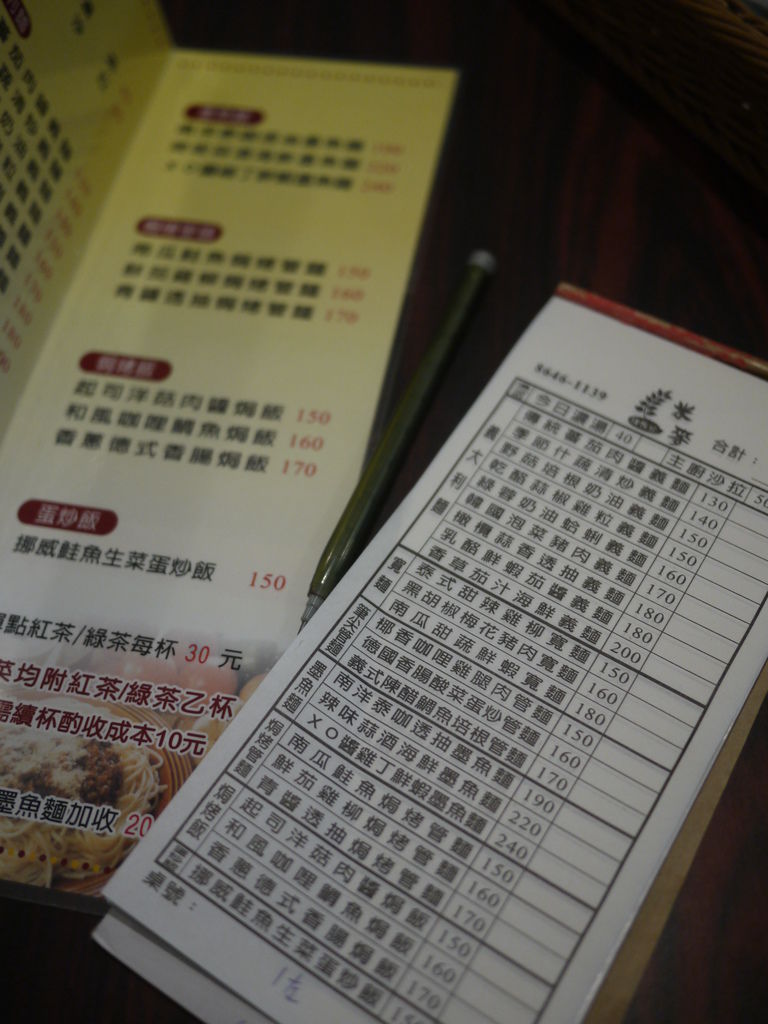 起司洋菇肉醬焗飯 150
和風咖哩鯛魚焗飯 160
香蔥德式香腸焗飯 170
蛋炒飯
挪威鮭魚生菜蛋炒飯 150
點紅茶/綠茶每杯 30 元
菜均附紅茶/綠茶乙杯
需續杯酌收成本10元
墨魚麵加收 20
南瓜鮭魚焗烤管麵 150
鮮茄雞柳焗烤管麵 160
青醬透抽焗烤管麵 170
焗烤飯
8646-1139
合計:
今日濃湯 40 主廚沙拉 50
義大利麵
傳統蕃茄肉醬義麵 130
季節什蔬清炒義麵 140
野菇培根奶油義麵 150
乾酪蒜椒雞粒義麵 150
綠蓉奶油蛤蜊義麵 160
韓國泡菜豬肉義麵 170
橄欖蒜香透抽義麵 180
乳酪鮮蝦茄醬義麵 180
香草茄汁海鮮義麵 200
寬麵
泰式甜辣雞柳寬麵 150
黑胡椒梅花豬肉寬麵 160
南瓜甜蔬鮮蝦寬麵 180
筆尖管麵
椰香咖哩雞腿肉管麵 150
德國香腸酸菜蛋炒管麵 160
義式陳醋鯛魚培根管麵 170
墨魚麵
南洋泰咖透抽墨魚麵 190
辣味蒜酒海鮮墨魚麵 220
XO醬雞丁鮮蝦墨魚麵 240
焗烤管麵
南瓜鮭魚焗烤管麵 150
鮮茄雞柳焗烤管麵 160
青醬透抽焗烤管麵 170
焗烤飯
起司洋菇肉醬焗飯 150
和風咖哩鯛魚焗飯 160
香蔥德式香腸焗飯 170
挪威鮭魚生菜蛋炒飯 150
桌號: